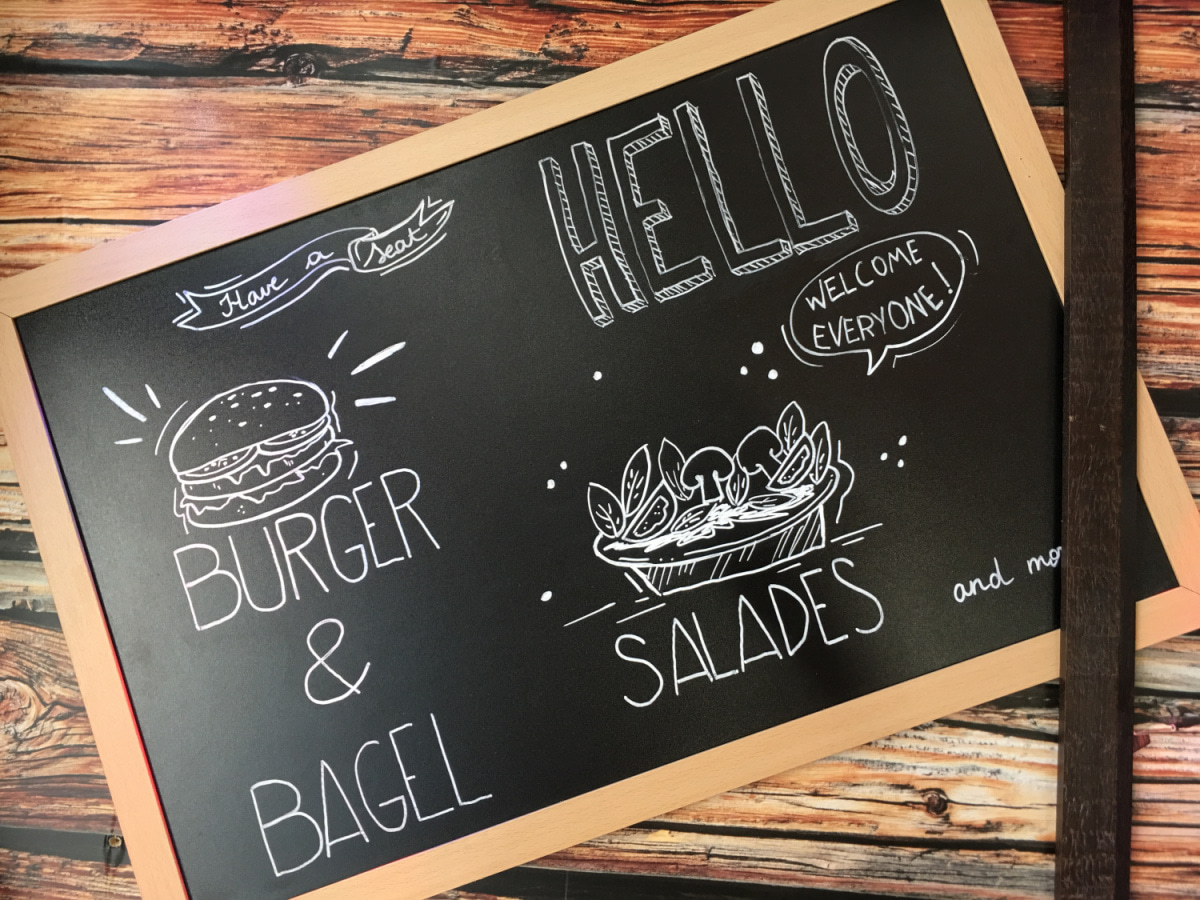 HELLO
Have a Seat
WELCOME
EVERYONE!
BURGER
&
BAGEL
SALADES
and